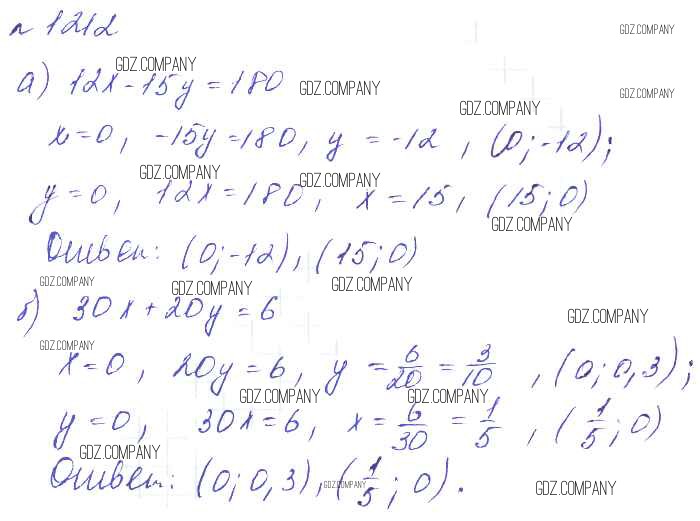 n 1212
GDZ.COMPANY
GDZ.COMPANY
а) 12x - 15y = 180
GDZ.COMPANY
GDZ.COMPANY
GDZ.COMPANY
x = 0, -15y = 180, y = -12, (0; -12);
GDZ.COMPANY
GDZ.COMPANY
y = 0, 12x = 180, x = 15, (15; 0)
GDZ.COMPANY
Ответ: (0; -12), (15; 0)
GDZ.COMPANY
GDZ.COMPANY
GDZ.COMPANY
б) 30x + 20y = 6
GDZ.COMPANY
GDZ.COMPANY
x = 0, 20y = 6, y = 6/20 = 3/10, (0; 0,3);
GDZ.COMPANY
GDZ.COMPANY
y = 0, 30x = 6, x = 6/30 = 1/5, (1/5; 0)
GDZ.COMPANY
Ответ: (0; 0,3), (1/5; 0).
GDZ.COMPANY
GDZ.COMPANY